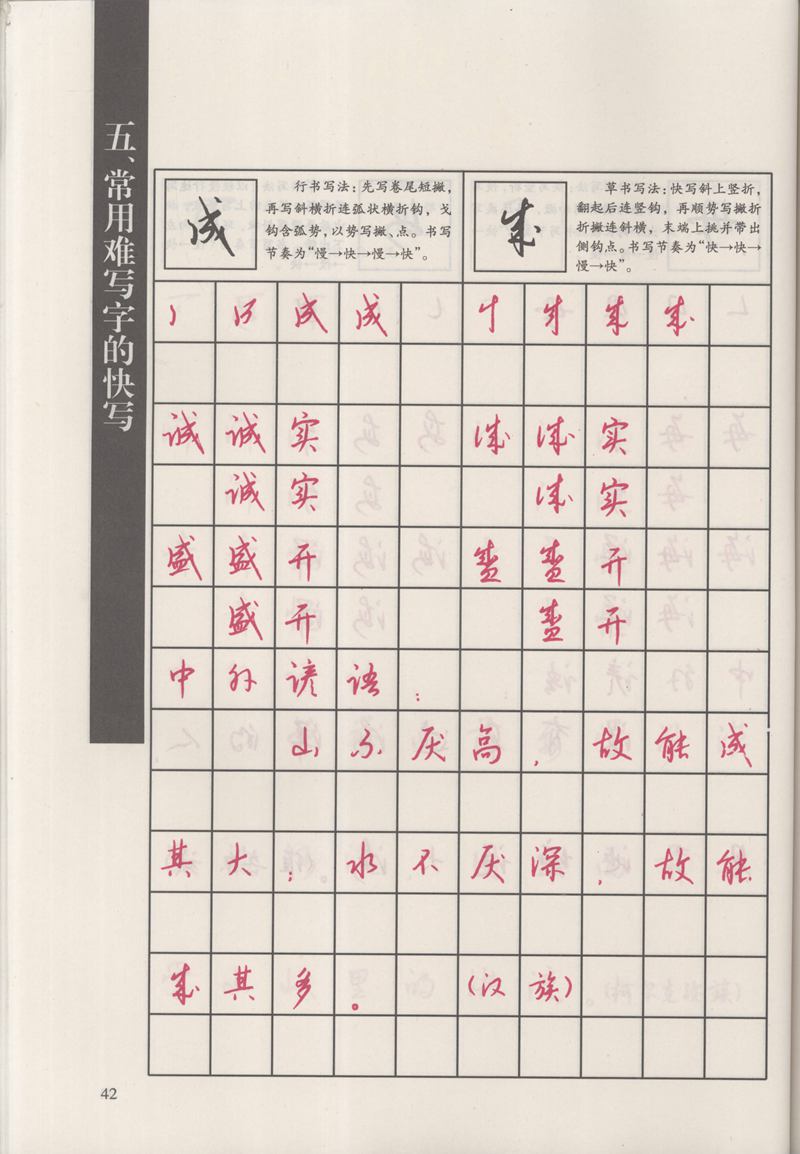 五、常用难写字的快写
成
行书写法：先写卷尾短撇，
再写斜横折连弧状横折钩，戈
钩含弧势，以势写撇、点。书写
节奏为“慢→快→慢→快”。
成
草书写法：快写斜上竖折，
翻起后连竖钩，再顺势写撇折
折撇连斜横，末端上挑并带出
侧钩点。书写节奏为“快→快→
慢→快”。
成 成 成
诚 诚 实 诚 诚 实
诚 实 诚 实
盛 盛 开 盛 盛 开
盛 开 盛 开
中 外 谚 语 ：
山 不 厌 高 ， 故 能 成
其 大 ； 水 不 厌 深 ， 故 能
成 其 多 。 （汉 族）
42